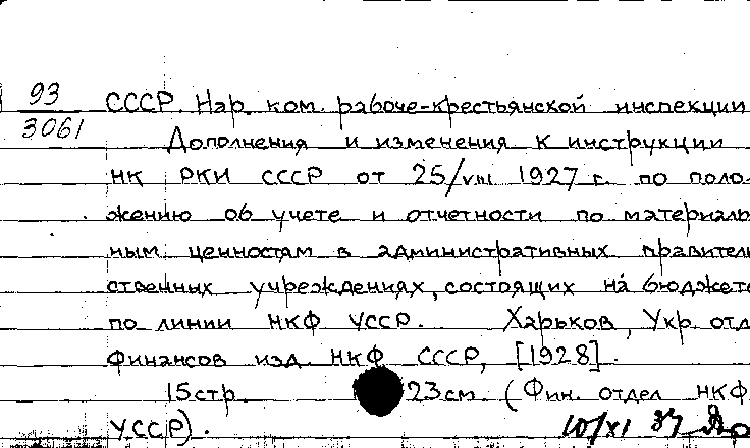 93
3061
СССР. Нар. ком. рабоче-крестьянской инспекции
Дополнения и изменения к инструкции
НК РКИ СССР от 25/VIII 1927 г. по поло-
жению об учете и отчетности по материаль-
ным ценностям в административных правитель-
ственных учреждениях, состоящих на бюджете
по линии НКФ УССР. Харьков, Укр. отд.
Финансов изд. НКФ СССР, [1928].
15 стр. 23 см. (Фин. отдел НКФ
УССР).
10/XI 37